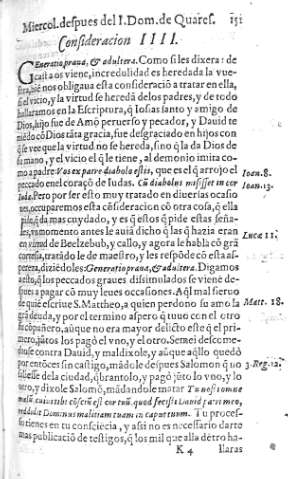 Miercol. despues del I. Dom. de Quares. 151
Consideracion IIII.
Generatio praua, & adultera. Como si les dixera: de
casta os viene, incredulidad es heredada la vue-
stra, no nos obligaua esta consideraciō a tratar en ella,
si el vicio, y la virtud se hereda de los padres, y de todo
hallaramos en la Escriptura, q̃ Iosias santo y amigo de
Dios, hijo fue de Amō peruerso y pecador, y Dauid te
niēdo cō Dios tāta gracia, fue desgraciado en hijos con
q̃ se vee que la virtud no se hereda, sino q̃ la da Dios de
su mano, y el vicio el q̃ le tiene, al demonio imita co-
mo a padre Vos ex patre diabolo estis, que es el q̃ arrojo el Ioan. 8.
peccado en el coraçō de Iudas. Cū diabolus misisset in cor Ioan. 13.
Iuda. Pero por ser esto muy tratado en diuersas ocasio
nes, occuparemos esta cōsideracion cō otra cosa, q̃ ella
pide, q̃ da mas cuydado, y es q̃ estos q̃ pide estas seña-
les, vn momento antes le auiā dicho q̃ las q̃ hazia eran
en virtud de Beelzebub, y callo, y agora le habla cō grā Lucæ 11.
cortesia, tratādo le de maestro, y les respōde cō esta as-
pereza, diziēdoles: Generatio praua, & adultera. Digamos
a esto, q̃ los peccados graues dissimulados se viene de-
spues a pagar cō muy leues occasiones. Aql mal sieruo
de quiē escriue S. Mattheo, a quien perdono su amo la Matt. 18.
grā deuda, y por el termino aspero q̃ tuuo con el otro
su cōpañero, aūque no era mayor delicto este q̃ el pri-
mero, jūtos los pagō el vno, y el otro. Semei descome-
diose contra Dauid, y maldixole, y aūque aqllo quedō
por entōces sin castigo, mādole despues Salomon q̃ no 3. Reg. 12.
saliesse de la ciudad, q̃brantolo, y pagō jūto lo vno, y lo
otro, y dixole Salomō, mādandole matar Tu nosti omne
malū, cuius tibi cōsciū est cor tuū, quod fecisti Dauid patri meo,
reddidit Dominus malitiam tuam in caput tuum. Tu proces-
so tienes en tu consciēcia, y assi no es necessario darte
mas publicaciō de testigos, q̃ los mil que alla dētro ha-
K 4 llaras